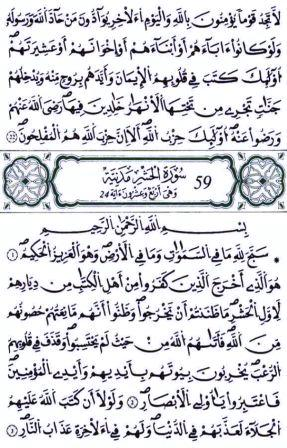 لَّا تَجِدُ قَوْمًا يُؤْمِنُونَ بِاللَّهِ وَالْيَوْمِ اِ۬لَاخِرِ يُوَآدُّونَ مَنْ حَآدَّ اَ۬للَّهَ وَرَسُولَهُۥ
وَلَوْ كَانُوٓاْ ءَابَآءَهُمُۥٓ أَوَ اَبْنَآءَهُمُۥٓ أَوِ اِخْوَٰنَهُمُۥٓ أَوْ عَشِيرَتَهُمُۥٓ
أُوْلَٰٓئِكَ كَتَبَ فِے قُلُوبِهِمُ اُ۬لِايمَٰنَ وَأَيَّدَهُم بِرُوحٍ مِّنْهُ وَيُدْخِلُهُمْ
جَنَّٰتٍ تَجْرِے مِن تَحْتِهَا اَ۬لَانْهَٰرُ خَٰلِدِينَ فِيهَا رَضِيَ اَ۬للَّهُ عَنْهُمْ
وَرَضُواْ عَنْهُ أُوْلَٰٓئِكَ حِزْبُ اُ۬للَّهِ أَلَآ إِنَّ حِزْبَ اَ۬للَّهِ هُمُ اُ۬لْمُفْلِحُونَ
59 سُورَةُ الْحَشْرِ مَدَنِيَّة
وَهِيَ أَرْبَعٌ وَعِشْرُونَ ءَايَة 24
بِسْمِ اِ۬للَّهِ اِ۬لرَّحْمَٰنِ اِ۬لرَّحِيمِ
سَبَّحَ لِلهِ مَا فِے اِ۬لسَّمَٰوَٰتِ وَمَا فِے اِ۬لَارْضِ وَهُوَ اَ۬لْعَزِيزُ اُ۬لْحَكِيمُ ١
هُوَ اَ۬لذِےٓ أَخْرَجَ اَ۬لذِينَ كَفَرُواْ مِنَ اَهْلِ اِ۬لْكِتَٰبِ مِن دِيٰرِهِمْ
لِأَوَّلِ اِ۬لْحَشْرِ مَا ظَنَنتُمُۥٓ أَنْ يَّخْرُجُواْ وَظَنُّوٓاْ أَنَّهُم مَّانِعَتُهُمْ حُصُونُهُم
مِّنَ اَ۬للَّهِ فَأَتَىٰهُمُ اُ۬للَّهُ مِنْ حَيْثُ لَمْ يَحْتَسِبُواْ وَقَذَفَ فِے قُلُوبِهِمُ
اُ۬لرُّعْبَ يُخْرِبُونَ بُيُوتَهُم بِأَيْدِيهِمْ وَأَيْدِے اِ۬لْمُومِنِينَ
فَاعْتَبِرُواْ يَٰٓأُوْلِے اِ۬لَابْصَٰرِ ٢ وَلَوْلَآ أَن كَتَبَ اَ۬للَّهُ عَلَيْهِمُ
اُ۬لْجَلَآءَ لَعَذَّبَهُمْ فِے اِ۬لدُّنْيَا وَلَهُمْ فِے اِ۬لَاخِرَةِ عَذَابُ اُ۬لنَّارِ ٣